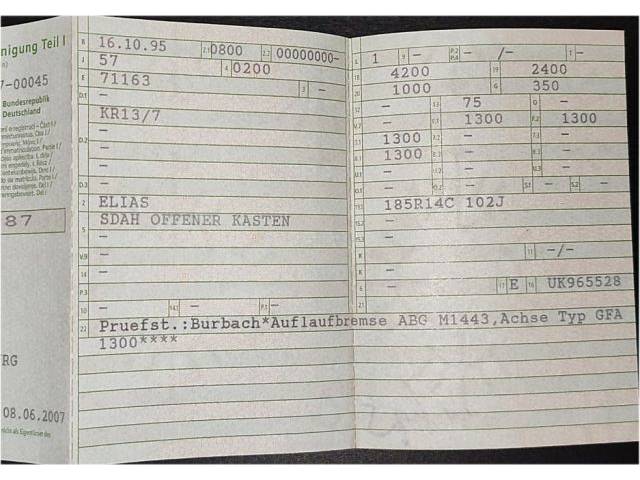 nigung Teil I
7-00045
Bundesrepublik
Deutschland
87
RG
08.06.2007
B 16.10.95 2.1 0800 2.2 00000000-
J 57 4 0200
E 71163 3 -
D.1 -
KR13/7
D.2 -
-
-
D.3 -
2 ELIAS
5 SDAH OFFENER KASTEN
-
V.9 -
14 -
P.3
10 - 14.1 - P.1 -
22 Pruefst.:Burbach*Auflaufbremse ABG M1443,Achse Typ GFA
1300****
L 1 9 - P.2 P.4 - /- T -
18 4200 19 2400
20 1000 G 350
12 - 13 75 Q -
V.7 - F.1 1300 F.2 1300
7.1 1300 7.2 - 7.3 -
8.1 1300 8.2 - 8.3 -
U.1 - U.2 - U.3 -
O.1 - O.2 - S.1 - S.2 -
15.1 185R14C 102J
15.2 -
15.3 -
R - 11 -/-
K -
6 - 17 E 16 UK965528
21